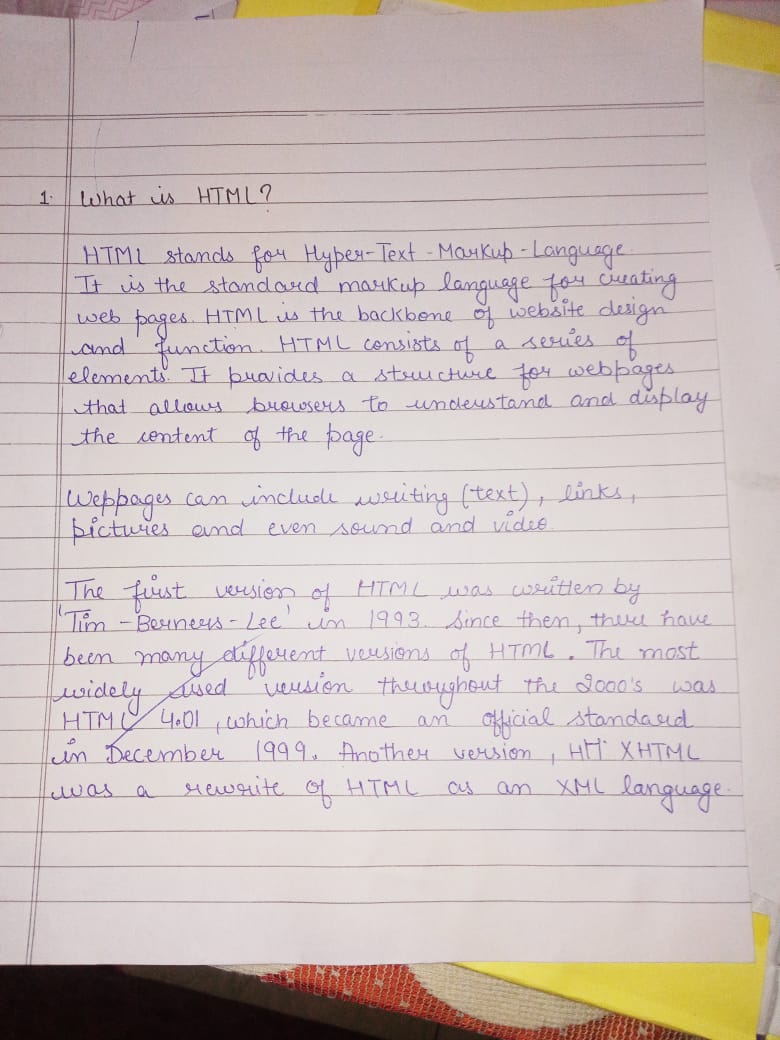 1. What is HTML?
HTML stands for Hyper-Text-Markup-Language.
It is the standard markup language for creating
web pages. HTML is the backbone of website design
and function. HTML consists of a series of
elements. It provides a structure for webpages
that allows browsers to understand and display
the content of the page.
Weppages can include writing (text), links,
pictures and even sound and video.
The first version of HTML was written by
'Tim-Berners-Lee' in 1993. Since then, there have
been many different versions of HTML. The most
widely used version throughout the 2000's was
HTML 4.01, which became an official standard
in December 1999. Another version, HM XHTML
was a rewrite of HTML as an XML language.